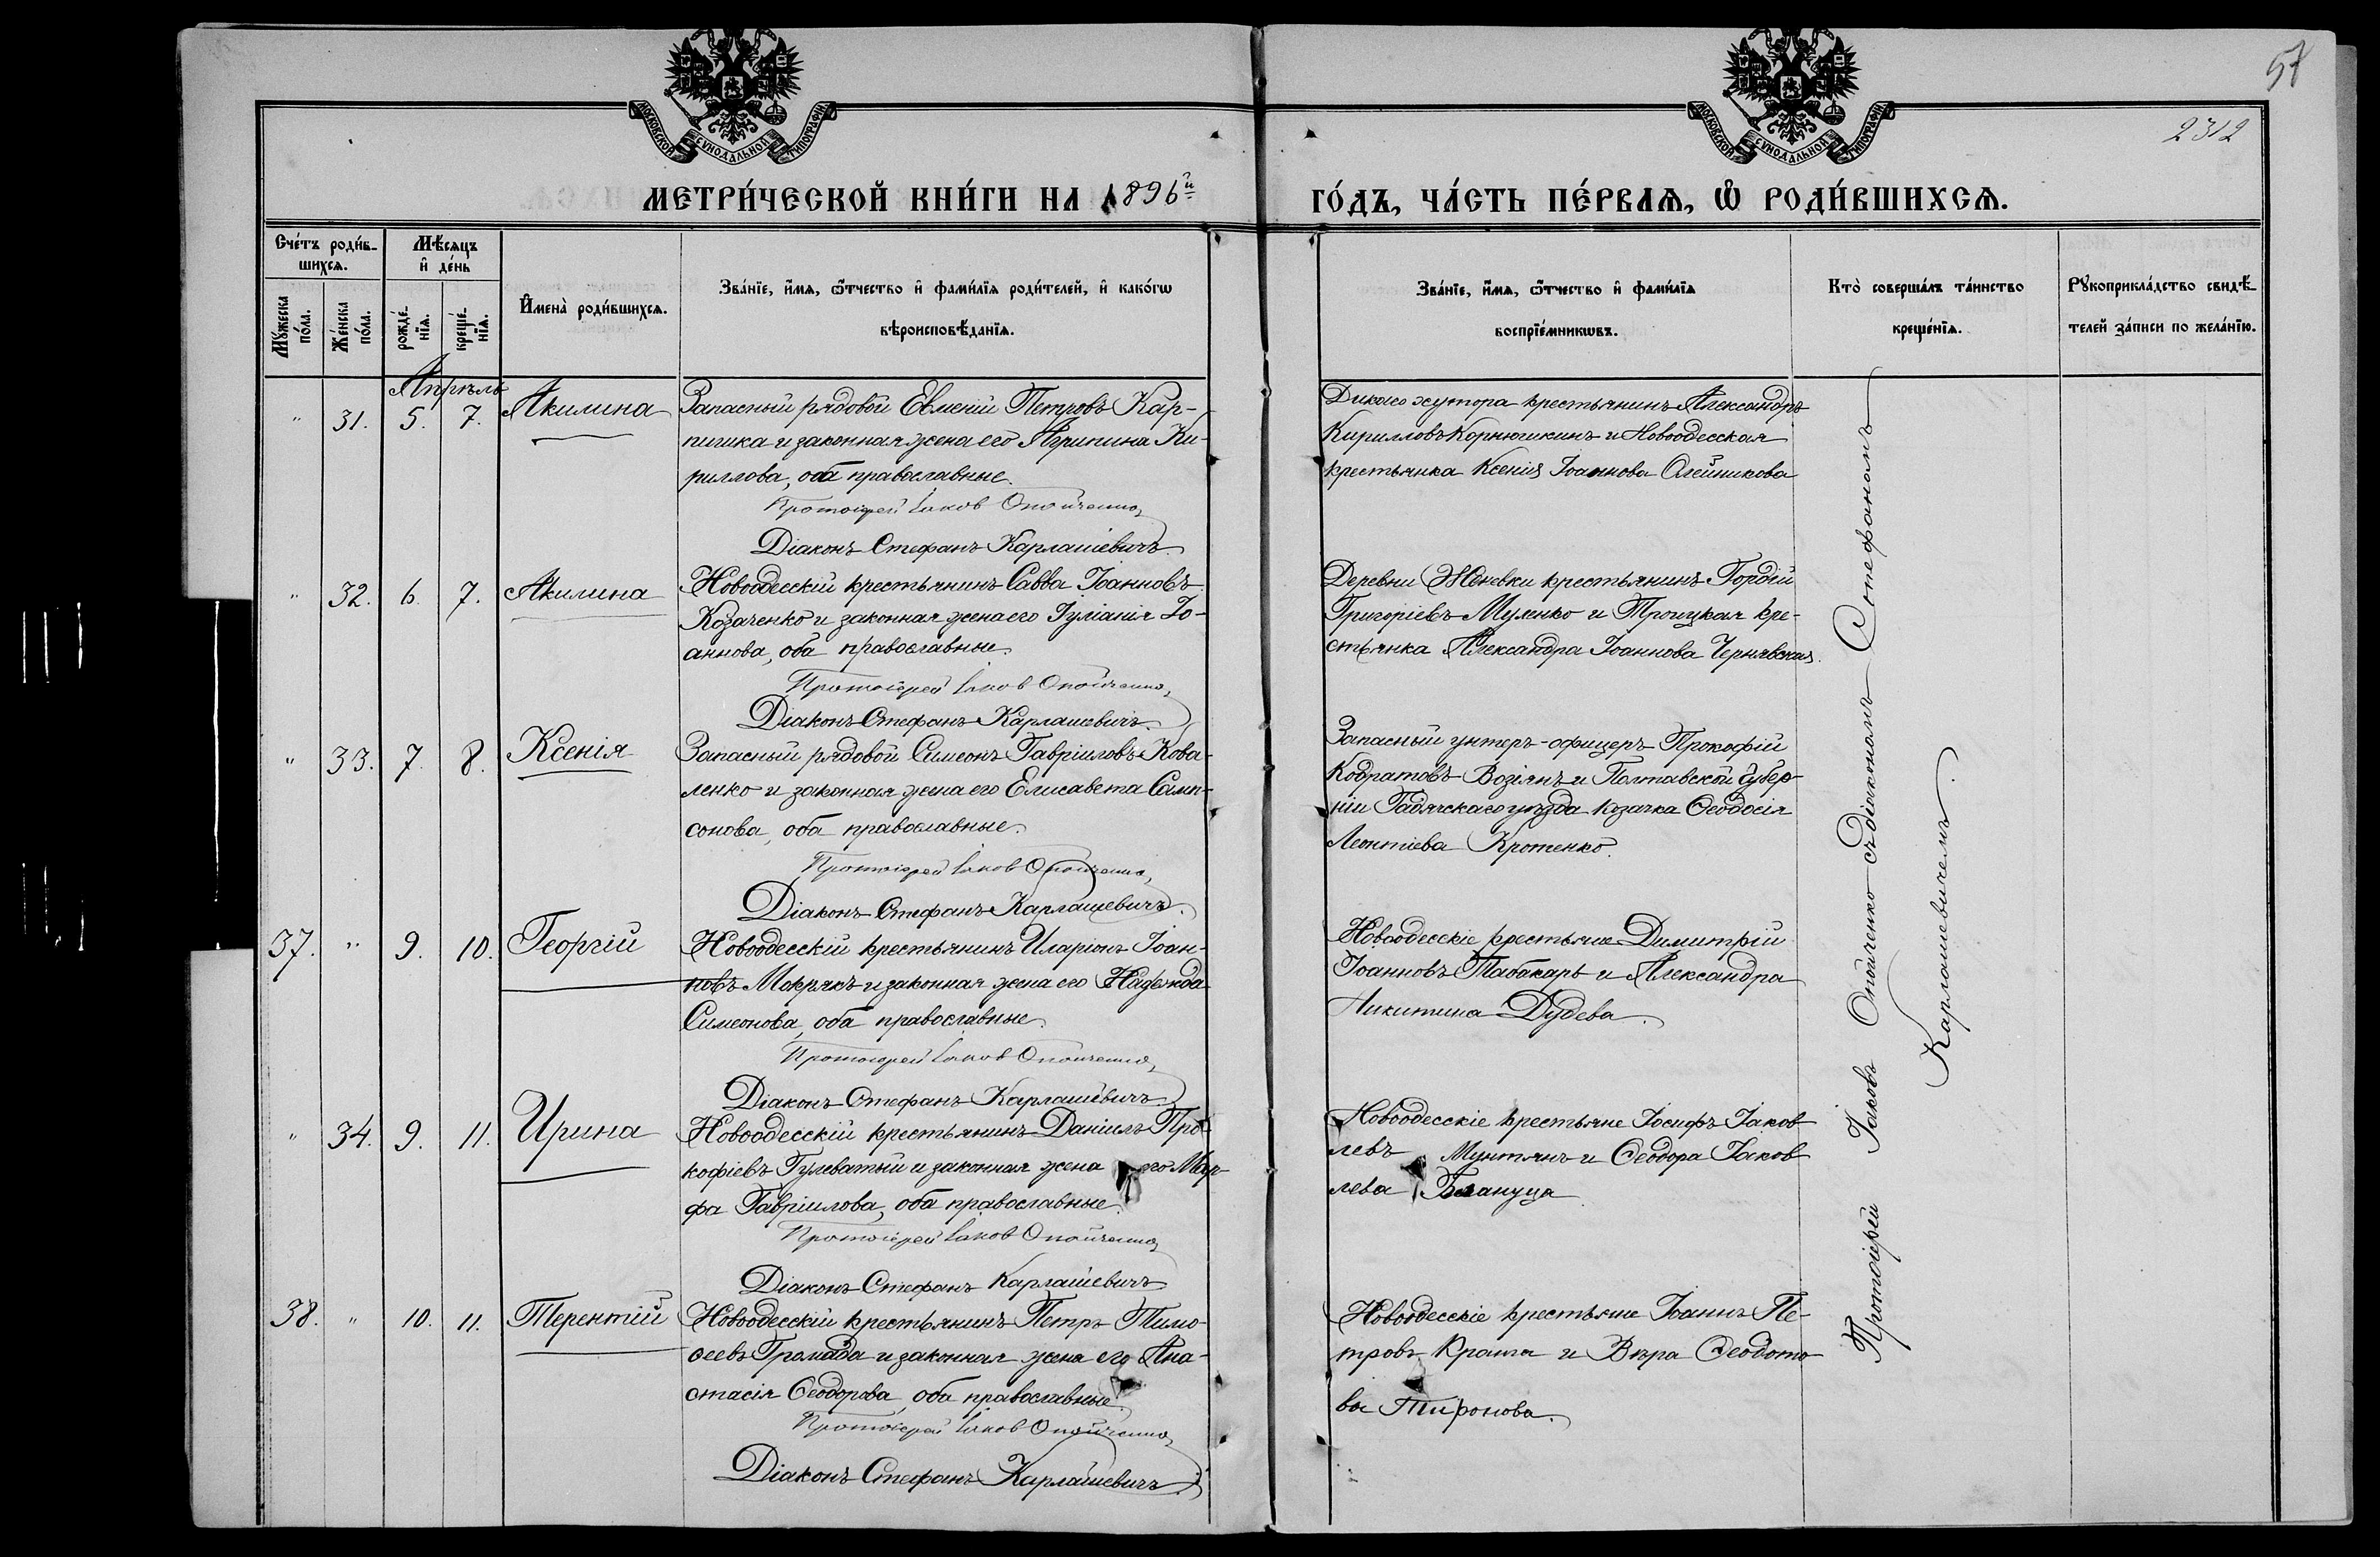 57
2312
МОСКОВСКОЙ СѴНОДАЛЬНОЙ ТИПОГРАФІИ
МОСКОВСКОЙ СѴНОДАЛЬНОЙ ТИПОГРАФІИ
МЕТРИ́ЧЕСКОЙ КНИ́ГИ НА 1896й ГО́ДЪ, ЧА́СТЬ ПЕ́РВАѦ, Ѡ҆ РОДИ́ВШИХСѦ.
Сче́тъ роди́в-
шихсѧ.
Мѣ́сѧцъ
и҆ де́нь
Мꙋ́жеска по́ла.
Же́нска по́ла.
рожде́-
нїѧ.
креще́-
нїѧ.
И҆мена̀ роди́вшихсѧ.
Зва́нїе, и҆́мѧ, ѻ҆́тчество и҆ фами́лїѧ роди́телей, и҆ како́гѡ
вѣроисповѣ́данїѧ.
Зва́нїе, и҆́мѧ, ѻ҆́тчество и҆ фами́лїѧ
воспрїе́мникѡвъ.
Кто̀ соверша́лъ та́инство
креще́нїѧ.
Рꙋкоприкла́дство свидѣ́-
телей за́писи по жела́нїю.
Апрѣль
" 31. 5. 7. Акилина
Запасный рядовой Евмений Петровъ Кар-
пишка и законная жена его Агрипина Ки-
риллова, оба православные.
Протоіерей Іаков Опойченко,
Діаконъ Стефанъ Карлашевичъ.
Дикаго хутора крестьянинъ Александръ
Кирилловъ Корнюшкинъ и Новоодесская
крестьянка Ксенія Іоаннова Олейникова
" 32. 6. 7. Акилина
Новоодесскій крестьянинъ Савва Іоанновъ
Козаченко и законная жена его Іуліанія Іо-
аннова, оба православные.
Протоіерей Іаков Опойченко,
Діаконъ Стефанъ Карлашевичъ.
Деревни Женевки крестьянинъ Гордій
Григоріевъ Муленко и Троицкая кре-
стьянка Александра Іоаннова Чернявская.
" 33. 7. 8. Ксенія
Запасный рядовой Симеонъ Гавріиловъ Кова-
ленко и законная жена его Елисавета Самп-
сонова, оба православные.
Протоіерей Іаков Опойченко,
Діаконъ Стефанъ Карлашевичъ.
Запасный унтеръ-офицеръ Прокофій
Кодратовъ Возіянъ и Полтавской губер-
ніи Гадячскаго уѣзда козачка Ѳеодосія
Леонтіева Кротенко.
37. " 9. 10. Георгій
Новоодесскій крестьянинъ Иларіонъ Іоан-
новъ Мокрякъ и законная жена его Надежда
Симеонова, оба православные.
Протоіерей Іаков Опойченко,
Діаконъ Стефанъ Карлашевичъ.
Новоодесскіе крестьяне Димитрій
Іоанновъ Табакарь и Александра
Никитина Дудева.
" 34. 9. 11. Ирина
Новоодесскій крестьянинъ Даніилъ Про-
кофіевъ Гулеватый и законная жена его Мар-
фа Гавріилова, оба православные.
Протоіерей Іаков Опойченко,
Діаконъ Стефанъ Карлашевичъ
Новоодесскіе крестьяне Іосифъ Іаков-
левъ Мунтянъ и Ѳеодора Іаков-
лева Блануца
38. " 10. 11. Терентій
Новоодесскій крестьянинъ Петръ Тимо-
ѳеевъ Громада и законная жена его Ана-
стасія Ѳеодорова, оба православные.
Протоіерей Іаков Опойченко,
Діаконъ Стефанъ Карлашевичъ.
Новоодесскіе крестьяне Іоаннъ Пе-
тровъ и Вѣра Ѳеодото-
ва Тиронова.
Протоіерей Іаковъ Опойченко съ діакономъ Стефаномъ
Карлашевичемъ.